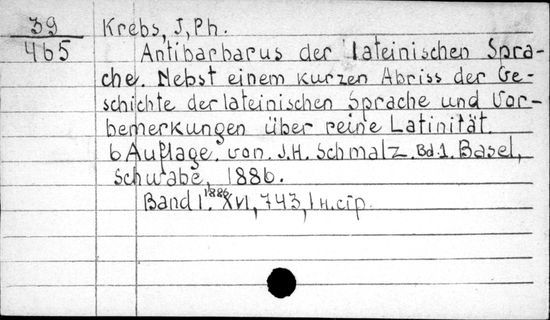 39 Krebs, J, Ph.
465 Antibarbarus der lateinischen Spra-
che. Nebst einem kurzen Abriss der Ge-
schichte der lateinischen Sprache und Vor-
bemerkungen über reine Latinität.
6 Auflage. von. J.H. Schmalz. Bd.1. Basel,
Schwabe, 1886.
Band 1. 1886 XVI, 743, 1 н.стр.